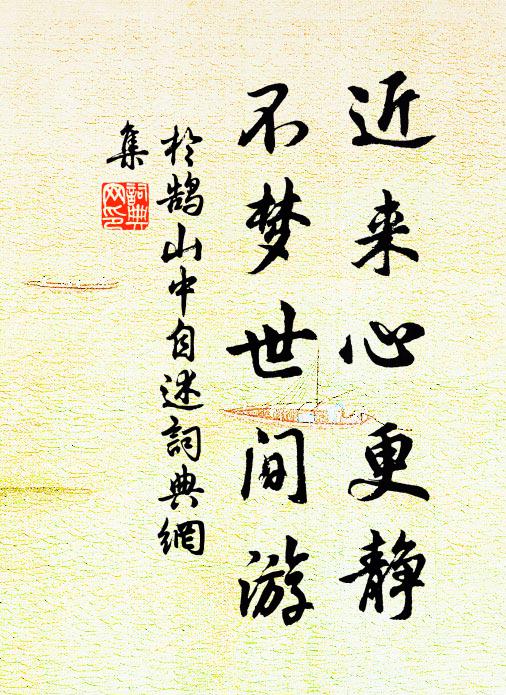 近来心更静
不梦世间游
於鹄山中自述詞典網
集
詞典網印